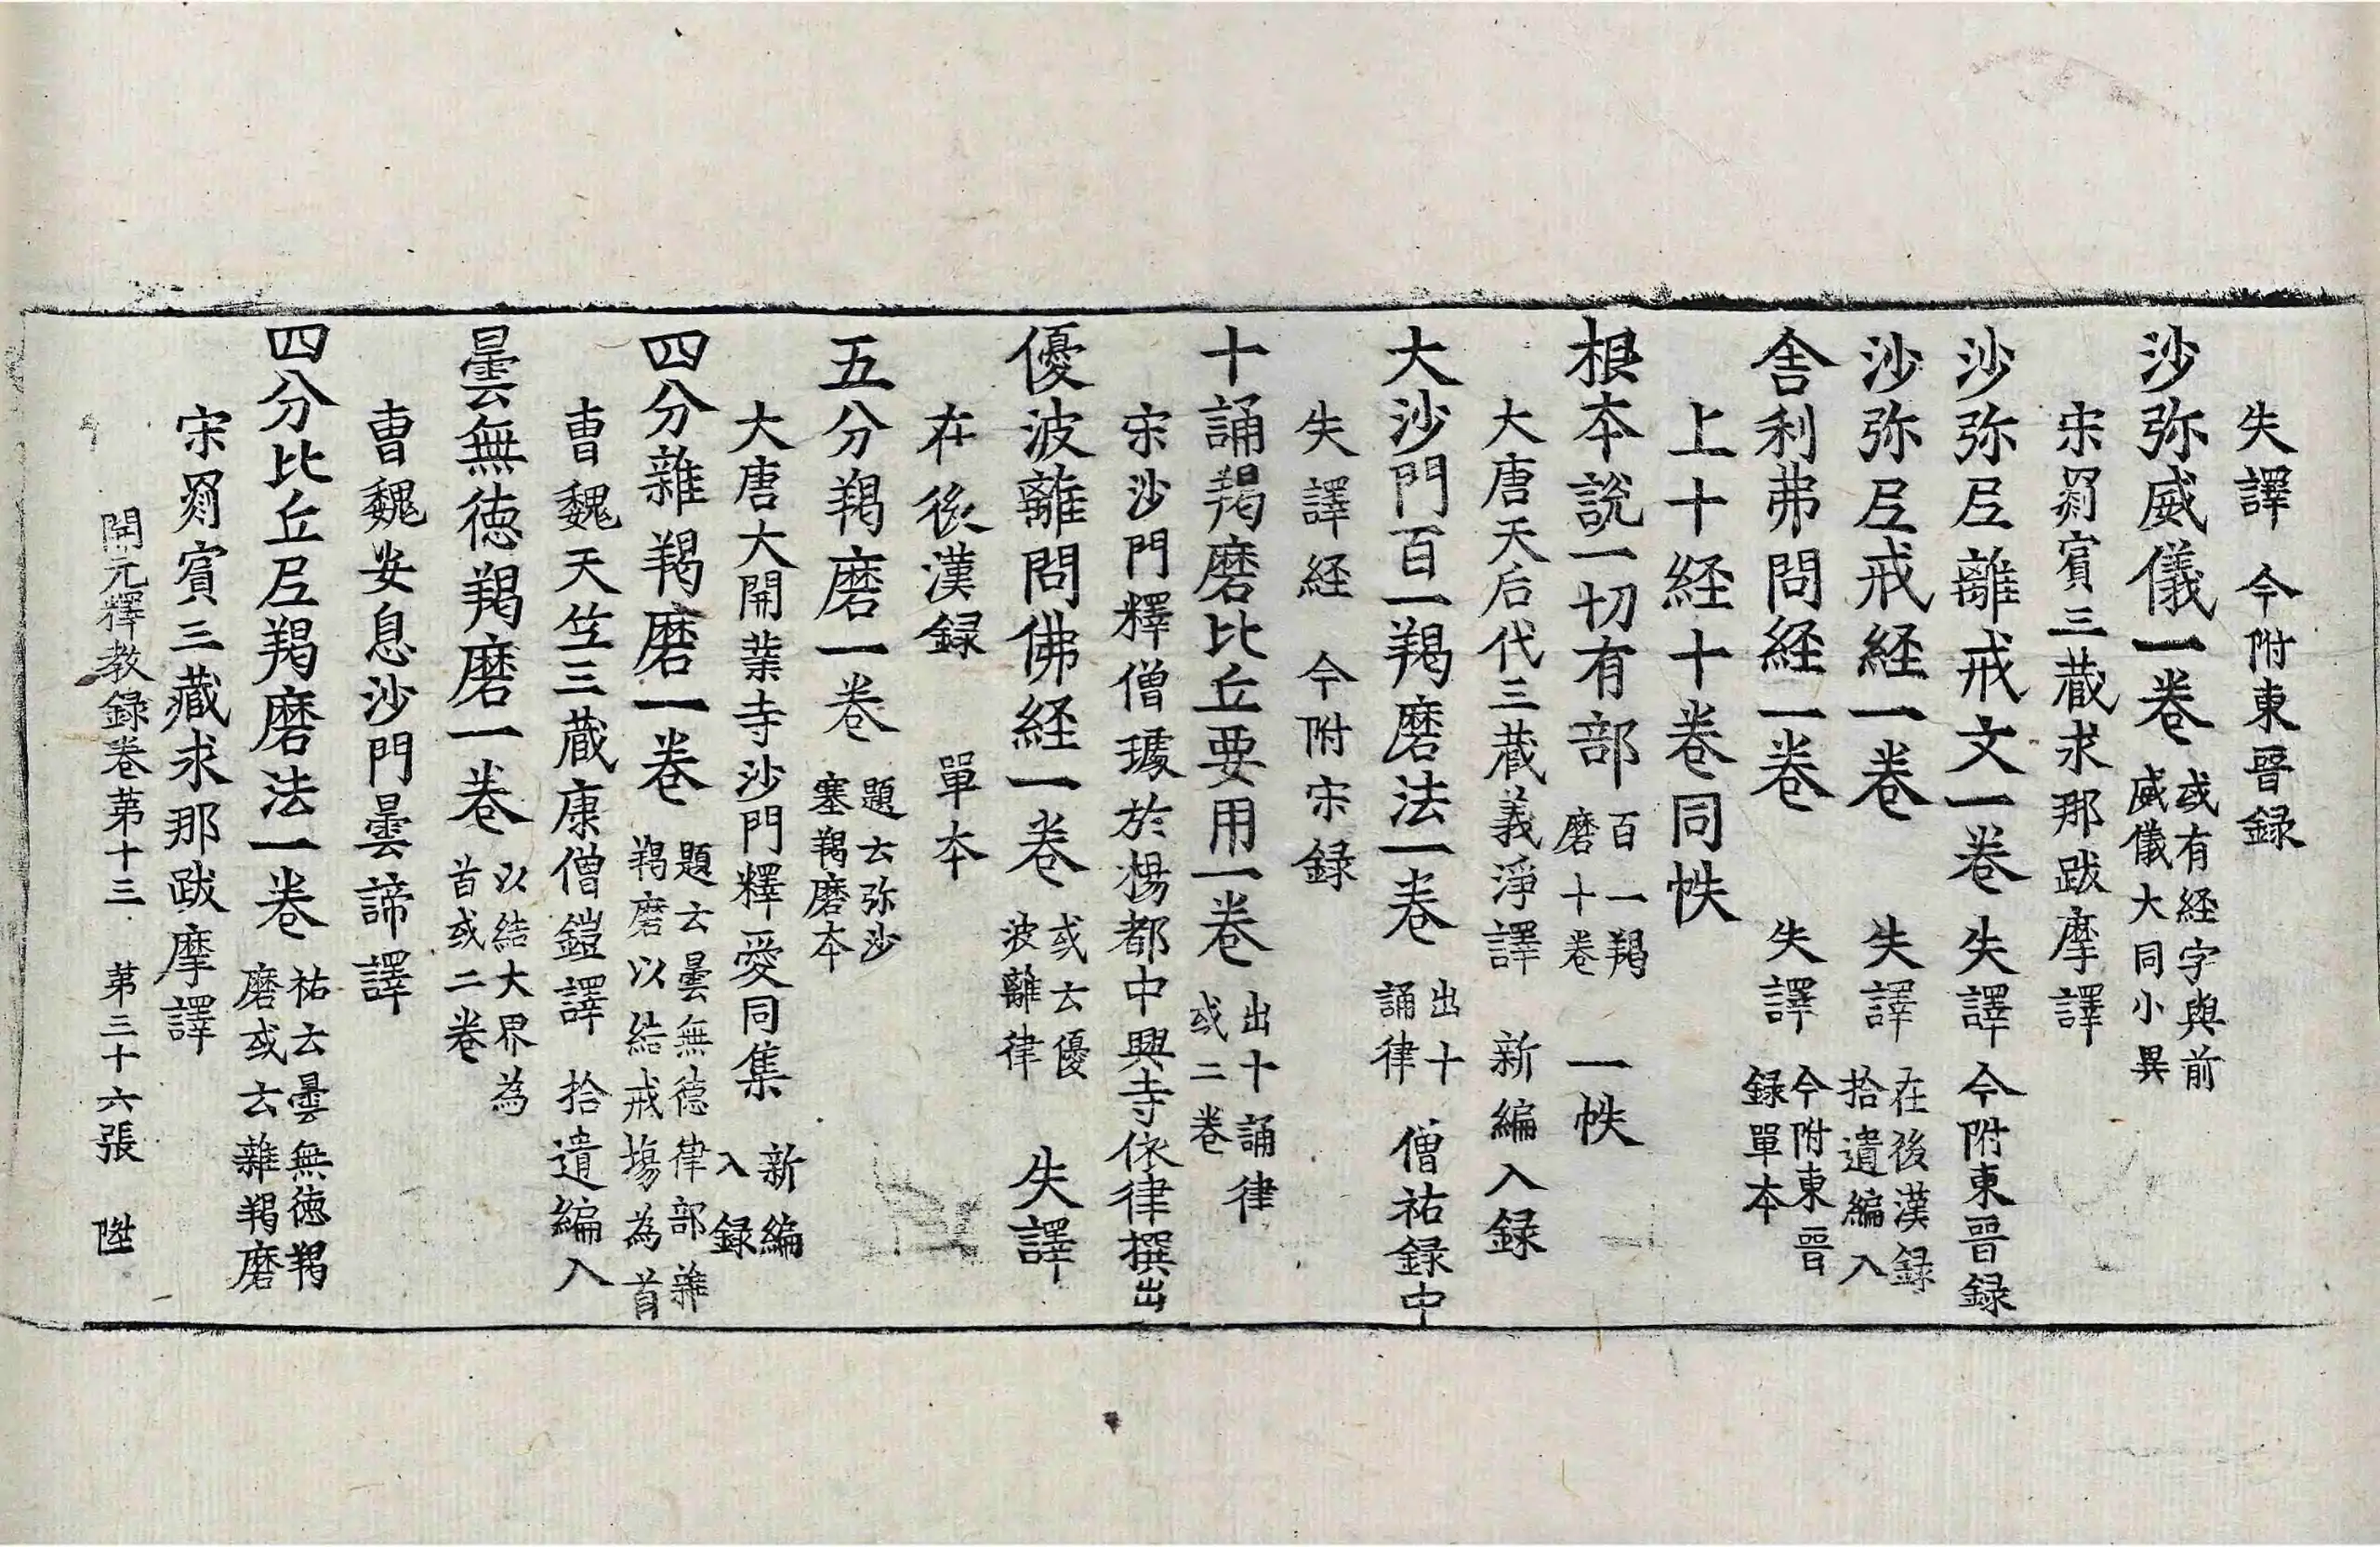 失譯 今附東晉録
沙弥威儀一卷 或有経字與前威儀大同小異
宋罽賔三藏求那跋摩譯
沙弥尼離戒文一卷 失譯今附東晉録
沙弥尼戒経一卷 失譯 在後漢録拾遺編入
舎利弗問経一卷 失譯 今附東晉録單本
上十経十卷同帙
根本說一切有部 百一羯磨十卷 一帙
大唐天后代三藏義淨譯 新編入録
大沙門百一羯磨法一卷 出十誦律 僧祐録中
失譯経 今附宋録
十誦羯磨比丘要用一卷 出十誦律或二卷
宋沙門釋僧璩於楊都中興寺依律撰出
優波離問佛経一卷 或云優波離律 失譯
在後漢録 單本
五分羯磨一卷 題云弥沙塞羯磨本
大唐大開業寺沙門釋愛同集 新編入録
四分雜羯磨一卷 題云曇無德律部雜羯磨以結戒場為首
曹魏天竺三藏康僧鎧譯 拾遺編入
曇無徳羯磨一卷 以結大界為首或二卷
曹魏安息沙門曇諦譯
四分比丘尼羯磨法一卷 祐云曇無徳羯磨或云雜羯磨
宋罽賔三藏求那跋摩譯
開元釋教録卷苐十三 苐三十六張 陞